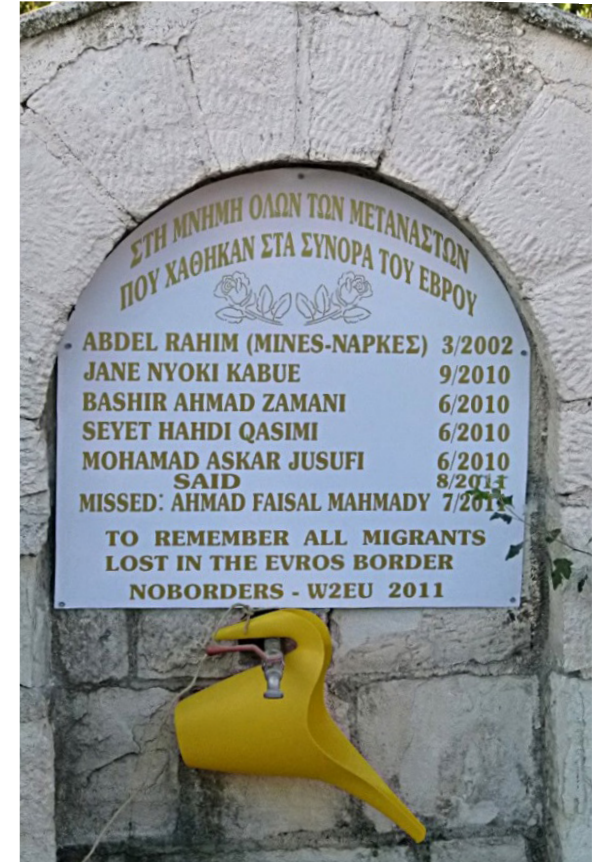 ΣΤΗ ΜΝΗΜΗ ΟΛΩΝ ΤΩΝ ΜΕΤΑΝΑΣΤΩΝ
ΠΟΥ ΧΑΘΗΚΑΝ ΣΤΑ ΣΥΝΟΡΑ ΤΟΥ ΕΒΡΟΥ
ABDEL RAHIM (MINES-ΝΑΡΚΕΣ) 3/2002
JANE NYOKI KABUE 9/2010
BASHIR AHMAD ZAMANI 6/2010
SEYET HAHDI QASIMI 6/2010
MOHAMAD ASKAR JUSUFI 6/2010
SAID 8/2011
MISSED: AHMAD FAISAL MAHMADY 7/2011
TO REMEMBER ALL MIGRANTS
LOST IN THE EVROS BORDER
NOBORDERS - W2EU 2011